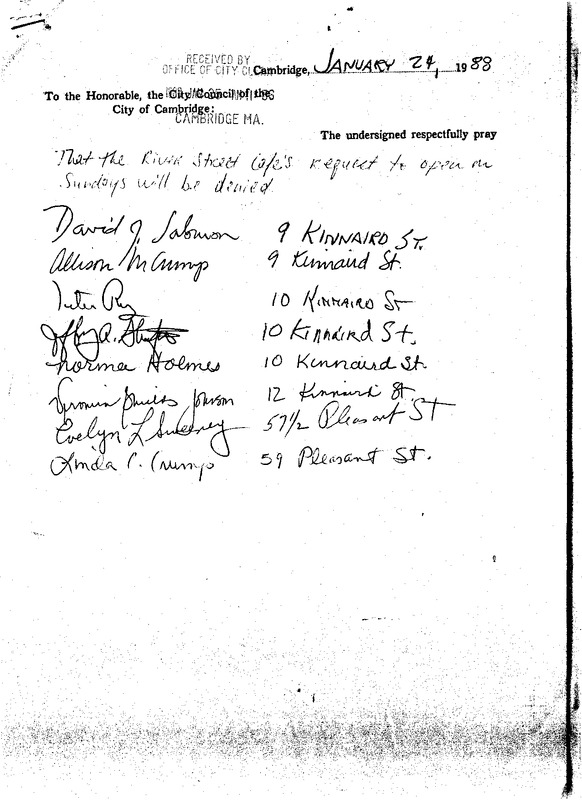 RECEIVED BY
OFFICE OF CITY Cambridge, JANUARY 24, 1988
To the Honorable, the City Council of the
City of Cambridge:
CAMBRIDGE MA.
The undersigned respectfully pray
That the River Street Cafe's request to open on
Sundays will be denied
David J. Salomon 9 KINNAIRD ST.
Allison M Crump 9 Kinnaird St.
10 KINNAIRD St
10 Kinnaird St.
Norma Holmes 10 Kinnaird St.
Johnson 12 Kinnaird St.
Evelyn L Sweeney 57 1/2 Pleasant ST
Linda C. Crump 59 Pleasant St.